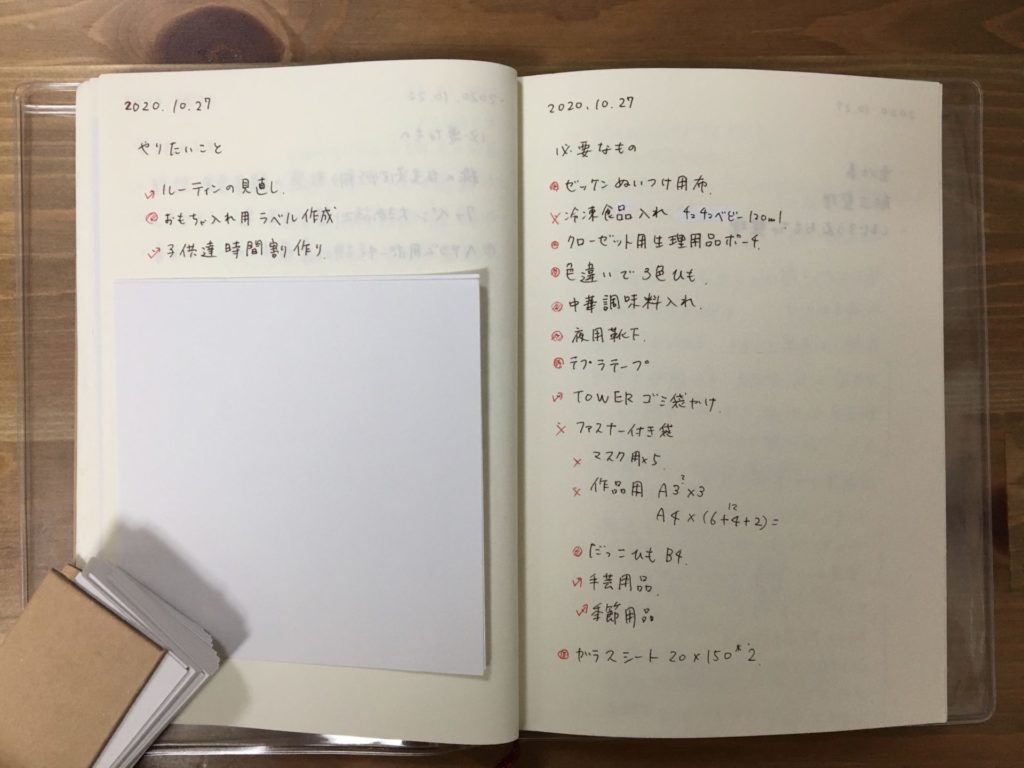 2020.10.27
やりたいこと
ルーティンの見直し.
おもちゃ入れ用 ラベル作成
子供達 時間割 作り.
2020.10.27
必要なもの
ゼッケン ぬいつけ用布.
冷凍食品入れ チュチュベビー 120ml
クローゼット用 生理用品ポーチ.
色違いで 3色ひも.
中華調味料入れ.
夜用靴下.
テプラテープ
TOWER ゴミ袋かけ.
ファスナー付き袋
マスク用×5.
作品用 A3×3
2
A4×(6+4+2)=
12
だっこひも B4.
手芸用品.
季節用品
ガラスシート 20×150 2.